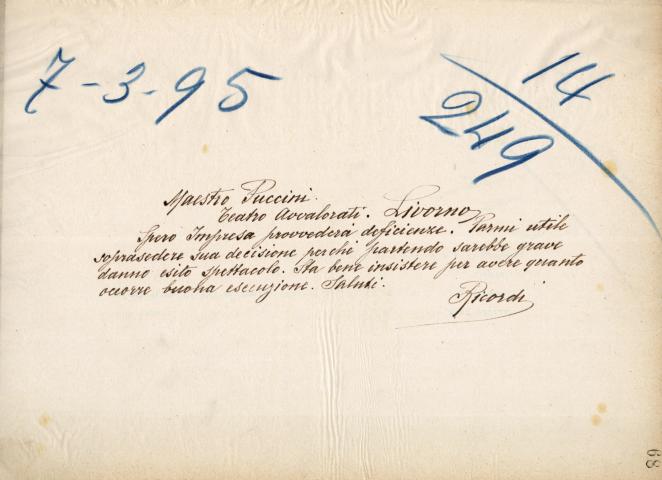 7-3-95
14
249
Maestro Puccini.
Teatro Avvalorati. Livorno
Spero Impresa provvederà deficienze. Parmi utile
soprasedere sua decisione perchè partendo sarebbe grave
danno esito spettacolo. Sta bene insistere per avere quanto
occorre buona esecuzione. Saluti.
Ricordi
68